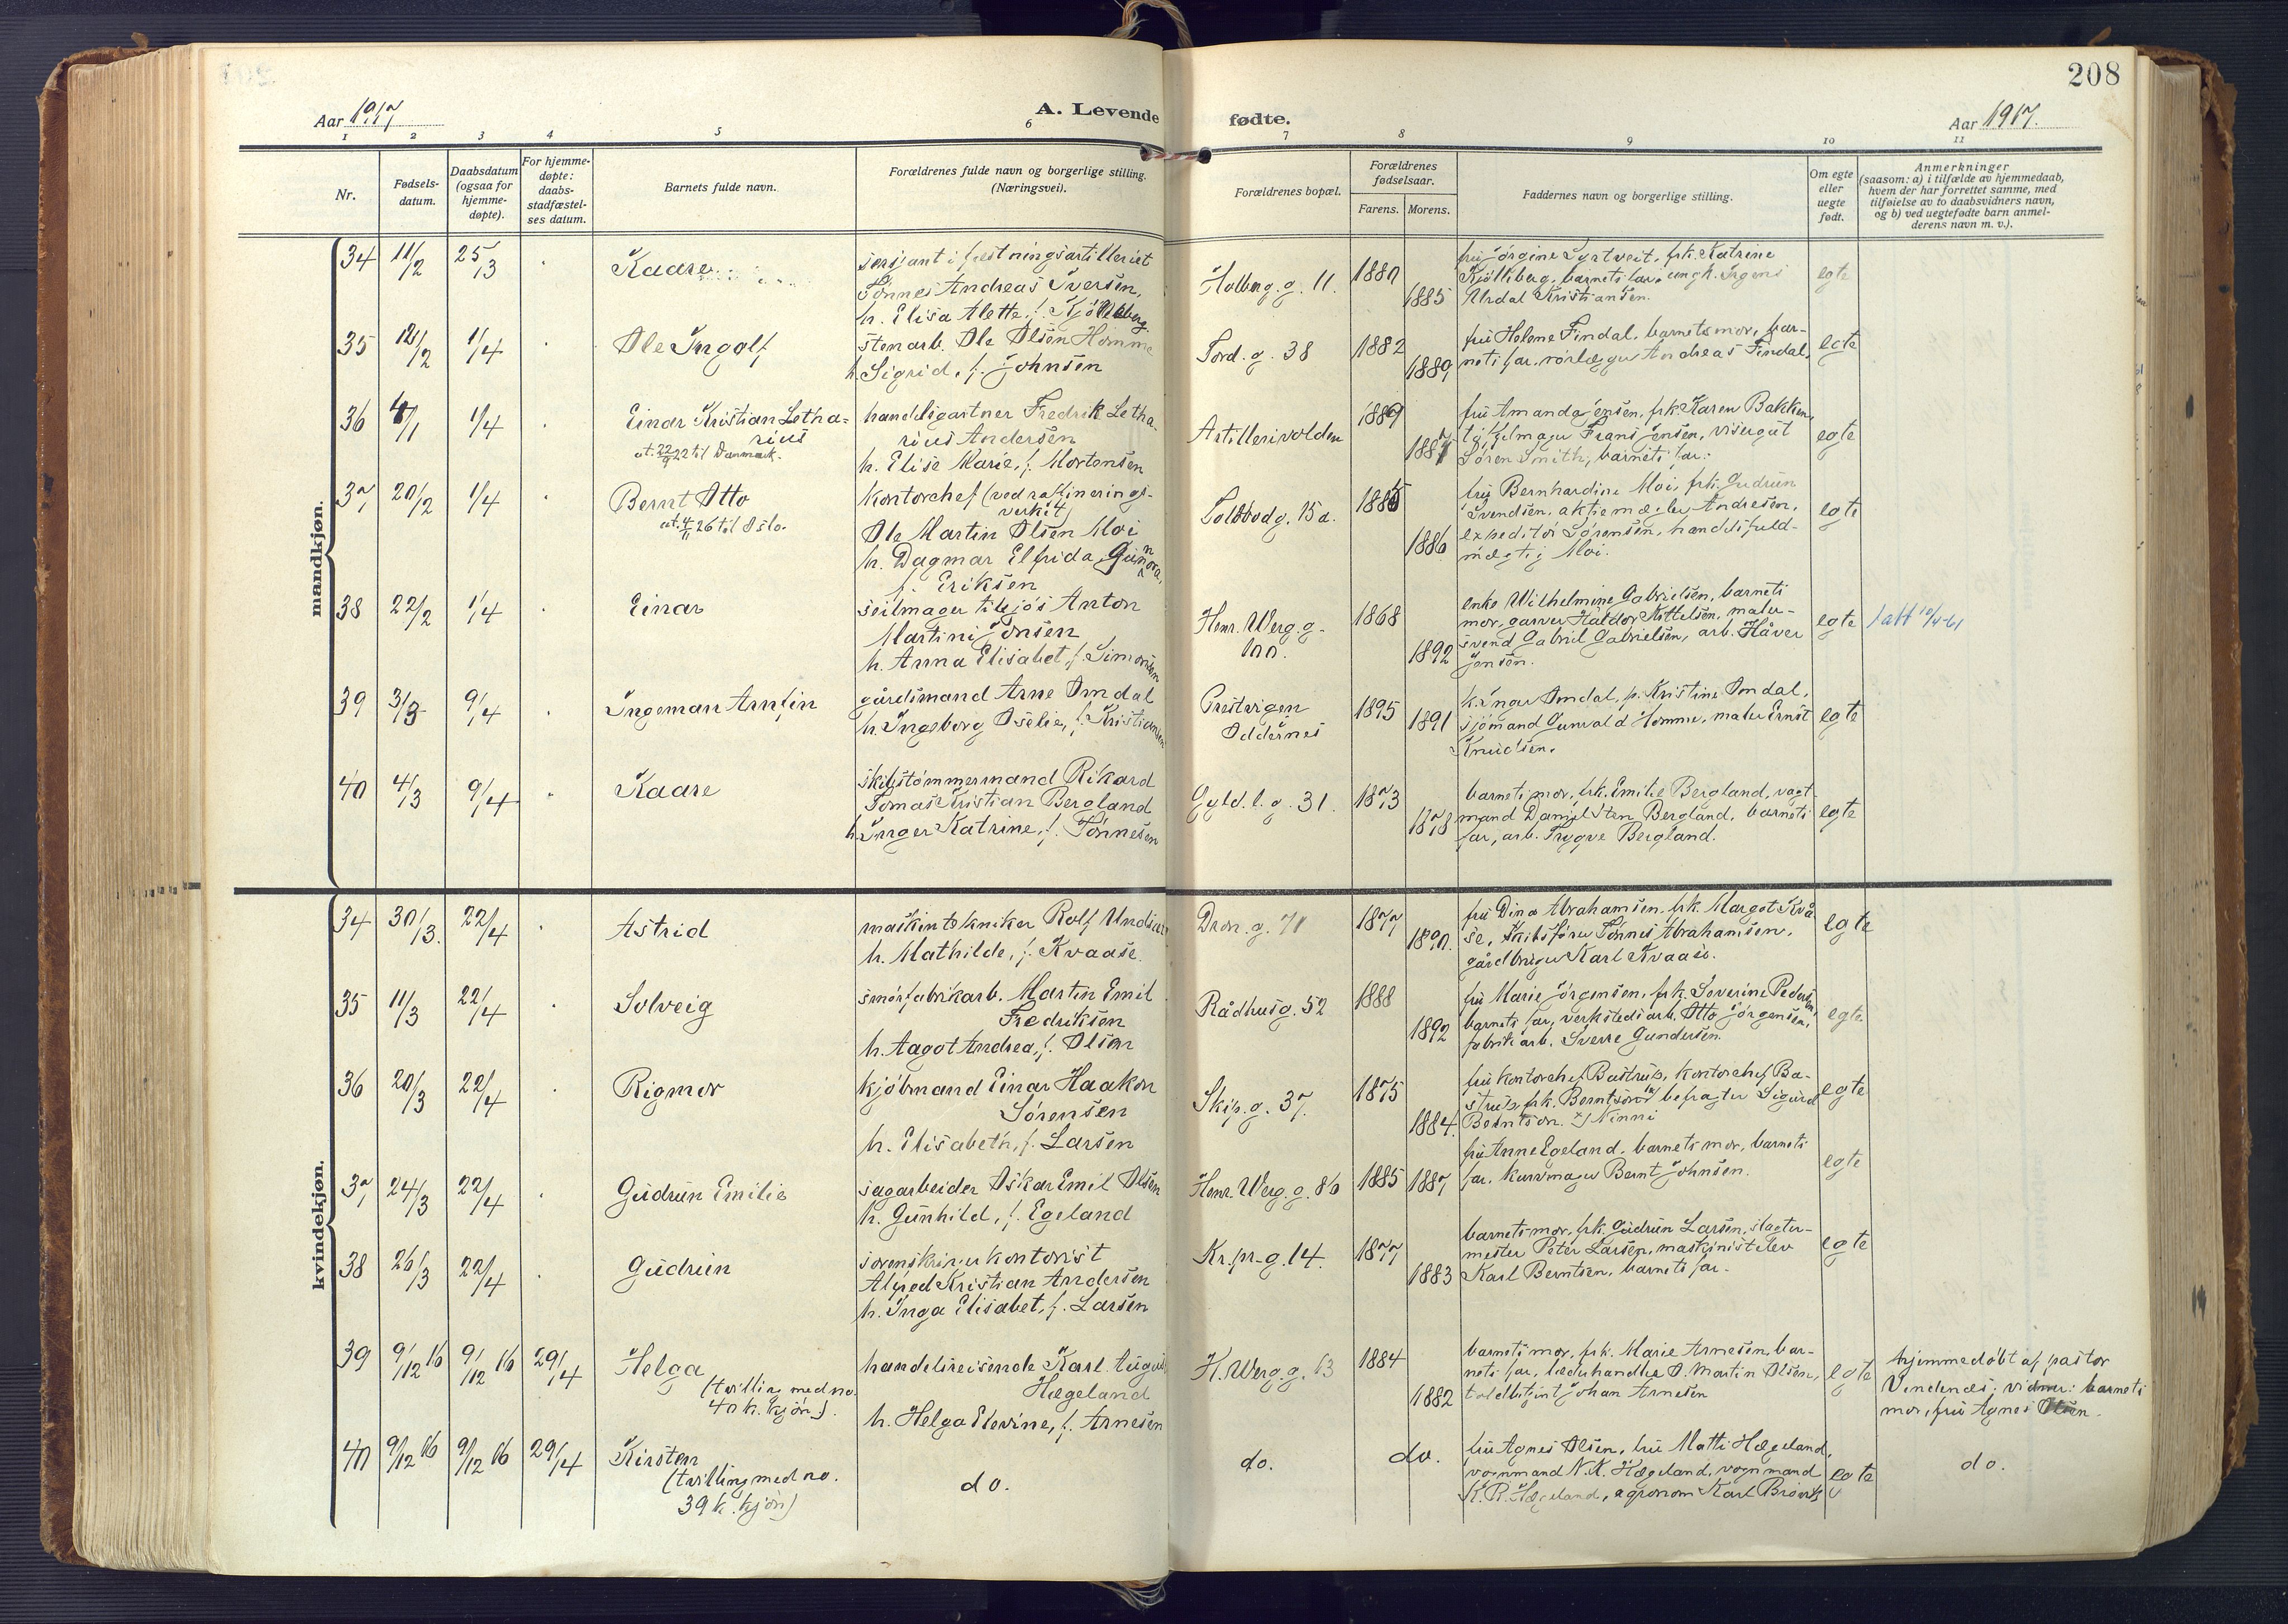 208
Aar 1917
A. Levende
fødte.
Aar 1917.
1 2 3 4 5 6 7 8 9 10 11
Nr.
Fødsels-
datum.
Daabsdatum
(ogsaa for
hjemme-
døpte).
For hjemme-
døpte:
daabs-
stadfæstel-
ses datum.
Barnets fulde navn.
Forældrenes fulde navn og borgerlige stilling.
(Næringsvei).
Forældrenes bopæl.
Forældrenes
fødselsaar.
Farens. Morens.
Faddernes navn og borgerlige stilling.
Om egte
eller
uegte
født.
Anmerkninger
(saasom: a) i tilfælde av hjemmedaab,
hvem der har forrettet samme, med
tilføielse av to daabsvidners navn,
og b) ved uegtefødte barn anmel-
derens navn m. v.).
mandkjøn.
34 11/2 25/3 Kaare
sersjant i festningsartilleriet
Tönnes Andreas Iversen,
h. Elisa Alette, f. Kjölleberg.
Holberg.g. 11. 1880 1885
fru Jörgine Syrtveit, frk. Katrine
Kjölleberg, barnets far, ungk.
Urdal Kristiansen.
egte
35 12/2 1/4 Ole Ingolf
stenarb. Ole Olsen Homme
h. Sigrid, f. Johnsen
Tord.g. 38 1882 1889
fru Helene Findal, barnets mor, bar-
nets far, rörlægger Andreas Findal.
egte
36 4/1 1/4 Einar Kristian Letha-
rius
ut. 22/9 22 til Danmark.
handelsgartner Fredrik Letha-
rius Andersen
h. Elise Marie, f. Mortensen
Artillerivolden 1889 1887
fru Amanda Jensen, frk Karen Bakken,
Frans Jensen, visergut
Sören Smith, barnets far.
egte
37 20/2 1/4 Bernt Otto
ut. 4/11 26 til Oslo.
kontorchef (ved raffinerings-
verket)
Ole Martin Olsen Moi
h. Dagmar Elfrida Gunnora,
f. Eriksen
Tolbbodg. 15 a. 1886
fru Bernhardine Moi, frk. Gudrun
Svendsen, aktiemægler Andresen,
expeditör Sörensen, handelsfuld-
mægtig Moi.
egte
38 22/2 1/4 Einar
seilmager tilsjös Anton
Martini Jonsen
h. Anna Elisabet, f. Simonsen
Henr. Werg.g. 100. 1868 1892
enke Wilhelmine Gabrielsen, barnets
mor, garver Haldor Kittelsen, maler-
svend Gabriel Gabrielsen, arb. Håver
Jensen.
egte 1 att 10/4-61
39 3/3 9/4 Ingeman Arnfin
gårdsmand Arne Omdal
h. Ingeborg Oselie, f. Kristiansen
Prestvigen
Oddernes
1895 1891
k. Inger Omdal, p. Kristine Omdal,
sjömand Gunvald Homme, maler Ernst
Knudsen.
egte
40 4/3 9/4 Kaare
skibstömmermand Rikard
Tomas Kristian Bergland
h. Inger Katrine, f. Tönnesen
Gyld.l.g. 31. 1873 1878
barnets mor, frk. Emilie Bergland, vagt-
mand Daniel Sten Bergland, barnets
far, arb. Trygve Bergland.
egte
kvindekjøn.
34 30/3. 22/4 Astrid
maskintekniker Rolf
h. Mathilde, f. Kvaase.
Dron.g. 71 1877 1890.
fru Dina Abrahamsen, frk. Margot Kvå-
se, skibsförer Tönnes Abrahamsen,
gårdbruger Karl Kvaase.
egte
35 11/3 22/4 Solveig
smörfabrikarb. Martin Emil
Fredriksen
h. Aagot Andrea, f. Olsen
Rådhusg. 52 1888 1892
fru Marie Jörgensen, frk. Severine Pedersen,
barnets far, verkstedsarb. Otto Jörgensen,
fabrikarb. Sverre Gundersen.
egte
36 20/3 22/4 Rigmor
kjöbmand Einar Haakon
Sörensen
h. Elisabeth, f. Larsen
Skip.g. 37. 1875 1884.
fru kontorchef Bastrup, kontorchef Ba-
strup, frk. Berntson x) befragter Sigurd
Berntson. x) Ninni
egte
37 24/3 22/4 Gudrun Emilie
sagarbeider Oskar Emil Olsen
h. Gunhild, f. Egeland
Henr. Werg.g. 86 1885 1887
fru Anne Egeland, barnets mor, barnets
far, kurvmager Bernt Johnsen.
egte
38 26/3 22/4 Gudrun
sorenskriverkontorist
Alfred Kristian Andersen
h. Inga Elisabet, f. Larsen
Kr.pr.g. 14. 1877 1883
barnets mor, frk. Gudrun Larsen, slagter-
mester Peter Larsen, maskinistelev
Karl Berntsen, barnets far.
egte
39 9/12 16 9/12 16 29/4 Helga
(tvilling med no.
40 k. kjön).
handelsreisende Karl August
Hægeland
h. Helga Elevine, f. Arnesen
H. Werg.g. 63 1884 1882
barnets mor, frk. Marie Arnesen, bar-
nets far, læderhandler O. Martin Olsen,
toldbetjent Johan Arnesen
egte
hjemmedöbt af pastor
Vindenes; vidner: barnets
mor, fru Agnes Olsen.
40 9/12 16 9/12 16 29/4 Kirsten
(tvilling med no.
39 k. kjön)
do. do. do.
fru Agnes Olsen, fru Matti Hægeland,
vognmand N. K. Hægeland, vognmand
K. R. Hægeland, agronom Karl
egte do.